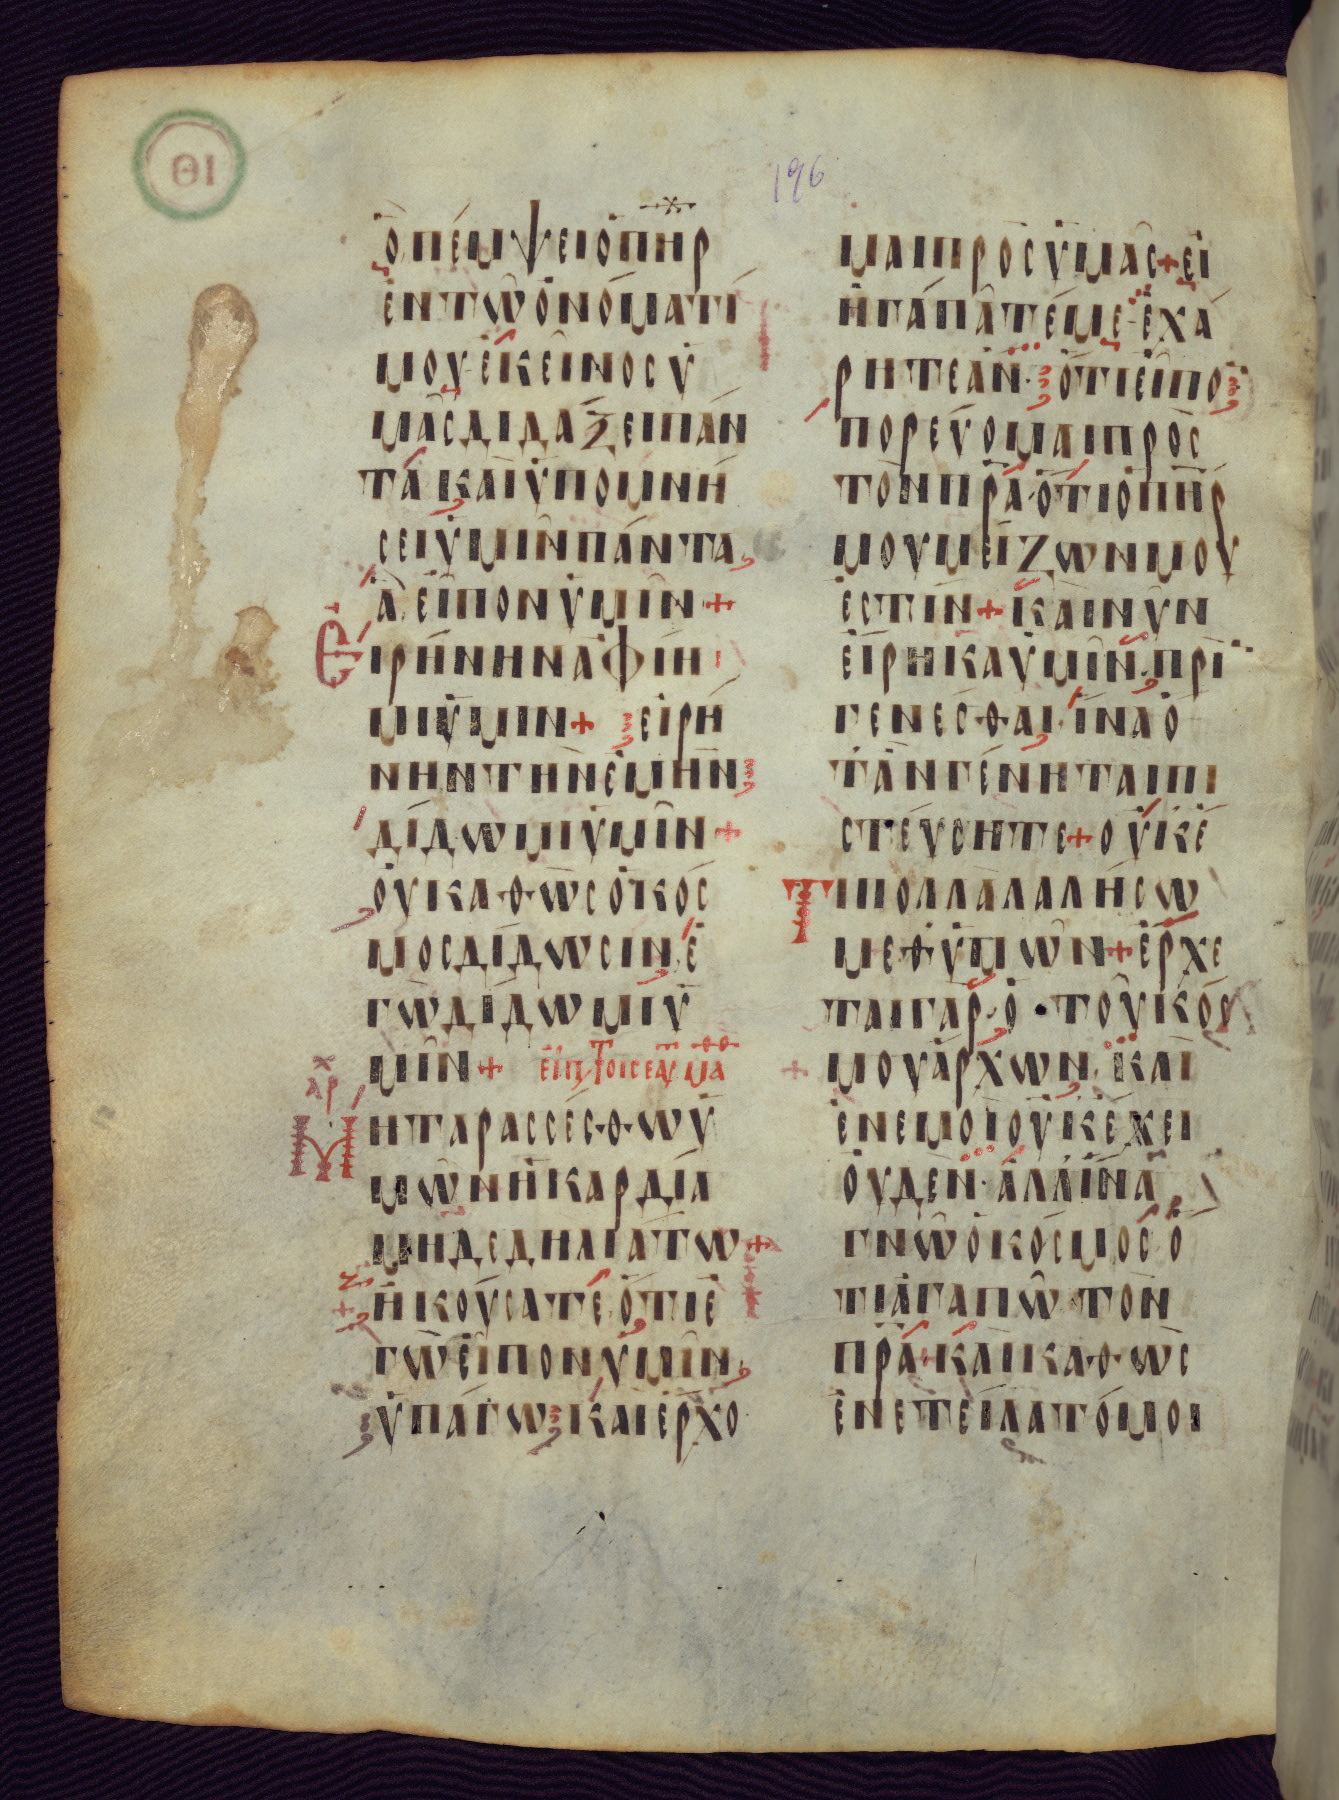 ΘΙ
196
ὃ πέμψει ὁ πηρ
ἐν τῶ ὀνόματί
μου ἐκεῖνος ὑ
μᾶς διδάξει πάν
τα καὶ ὑπομνή
σει ὑμῖν πάντα
ἃ εἶπον ὑμῖν +
Εἰρήνην ἀφίη
μι ὑμῖν + εἰρή
νην τὴν ἐμὴν
δίδωμι ὑμῖν +
οὐ καθὼς ὁ κόσ
μος δίδωσιν ἐ
γὼ δίδωμι ὑ
μῖν + εἶπ τοῖς ἑαυ μαθθ
αρχ
Μὴ ταρασσέσθω ὑ
μῶν ἡ καρδία
μηδὲ δηλιάτω +
ἠκούσατε ὅτι ἐ
γὼ εἶπον ὑμῖν
ὑπάγω καὶ ἔρχο
μαι πρὸς ὑμᾶς + εἰ
ἠγαπᾶτέ με ἐχά
ρητε ἄν ὅτι εἶπο
πορεύομαι πρὸς
τὸν πρα ὅτι ὁ πηρ
μου μείζων μου
ἐστίν + καὶ νῦν
εἴρηκα ὑμῖν πρὶ
γενέσθαι ἵνα ὅ
τὰν γένηται πι
στεύσητε + οὐκέ
Τι πολλὰ λαλήσω
μεθ ὑμῶν + ἔρχε
ται γὰρ ὁ τοῦ κόσ
μου ἄρχων καὶ
ἐν ἐμοὶ οὐκ ἔχει
οὐδέν ἀλλ ἵνα
γνῶ ὁ κόσμος ὅ
τι ἀγαπῶ τὸν
πρα καὶ καθὼς
ἐνετείλατό μοι